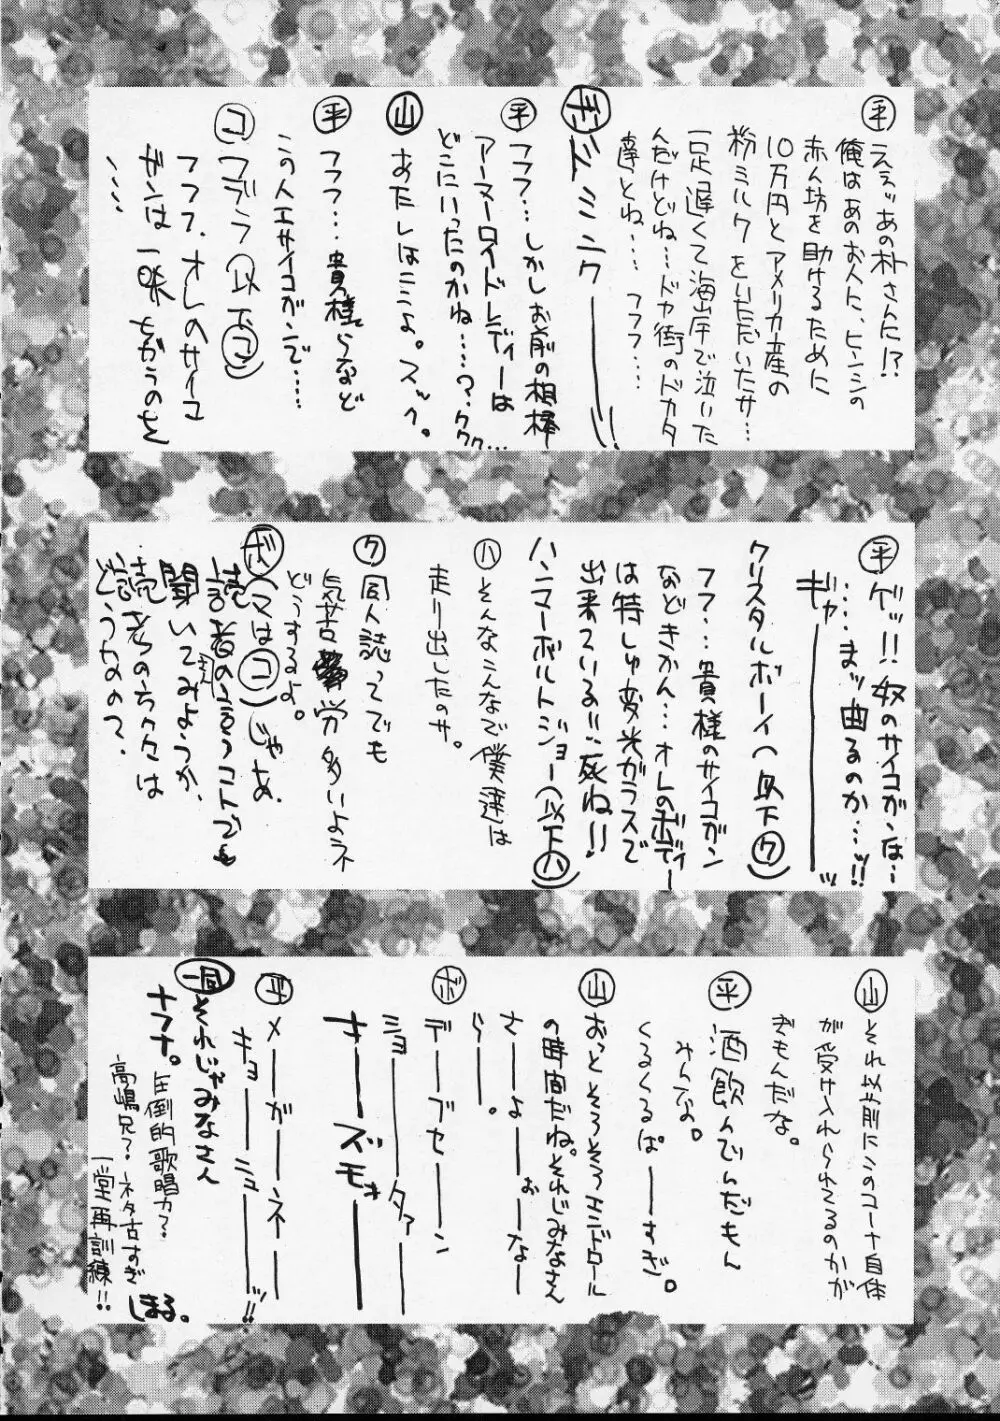 ㊥ えぇッあの朴さんに!?
俺はあのお人に、ヒンシの
赤ん坊を助けるために
10万円とアメリカ産の
粉ミルクをいただいたサ…
一足遅くて海岸で泣いた
んだけどね…ドヤ街のドカタ
達とね…フフフ…
ドミニク――――!!
㊥ フフフ…しかしお前の相棒
アーマーロイドレディーは
どこにいったのかね……?ククク…
㊤ あたしはここよ。スッ
㊥ フフフ…貴様らなど
この人工サイコガンで……
コブラ(以下コ)
フフフ、オレのサイコ
ガンは一味ちがうのさ
……
㊥ ゲッ!!奴のサイコガンは…
…まッ曲るのか…!!
ギャ――――ッ
クリスタルボーイ(以下ク)
フフ…貴様のサイコガン
などきかん…オレのボディー
は特しゅ変光ガラスで
出来ている!!死ね!!
ハンマーボルトジョー(以下ハ)
ハ そんなこんなで僕達は
走り出したのサ。
ク 同人誌ってでも
気苦労多いよネ
どうするよ。
ボ(又はコ)じゃあ、
読者の言うコトでも
聞いてみようか、
読者のちみは
どうなの?
山 それ以前にこのコーナ自体
が受け入れられてるのかが
ぎもんだな。
平 酒飲んでんだもん
みんな。
くるくるぱ――すぎ。
山 おっとそろそろエンドロール
の時間だね。それじみなさん
さ――よ――お――な――
ら――。
ボ デ――ブセ――ン
ショ――――タァ――
さ――ズモォ――
平 メ――ガ――ネ――
キョ――ニュ――ッ!!
一同 それじゃみなさん
圧倒的歌唱力?
高嶋兄?ネタ古すぎ
一堂再訓練!!
しまる。